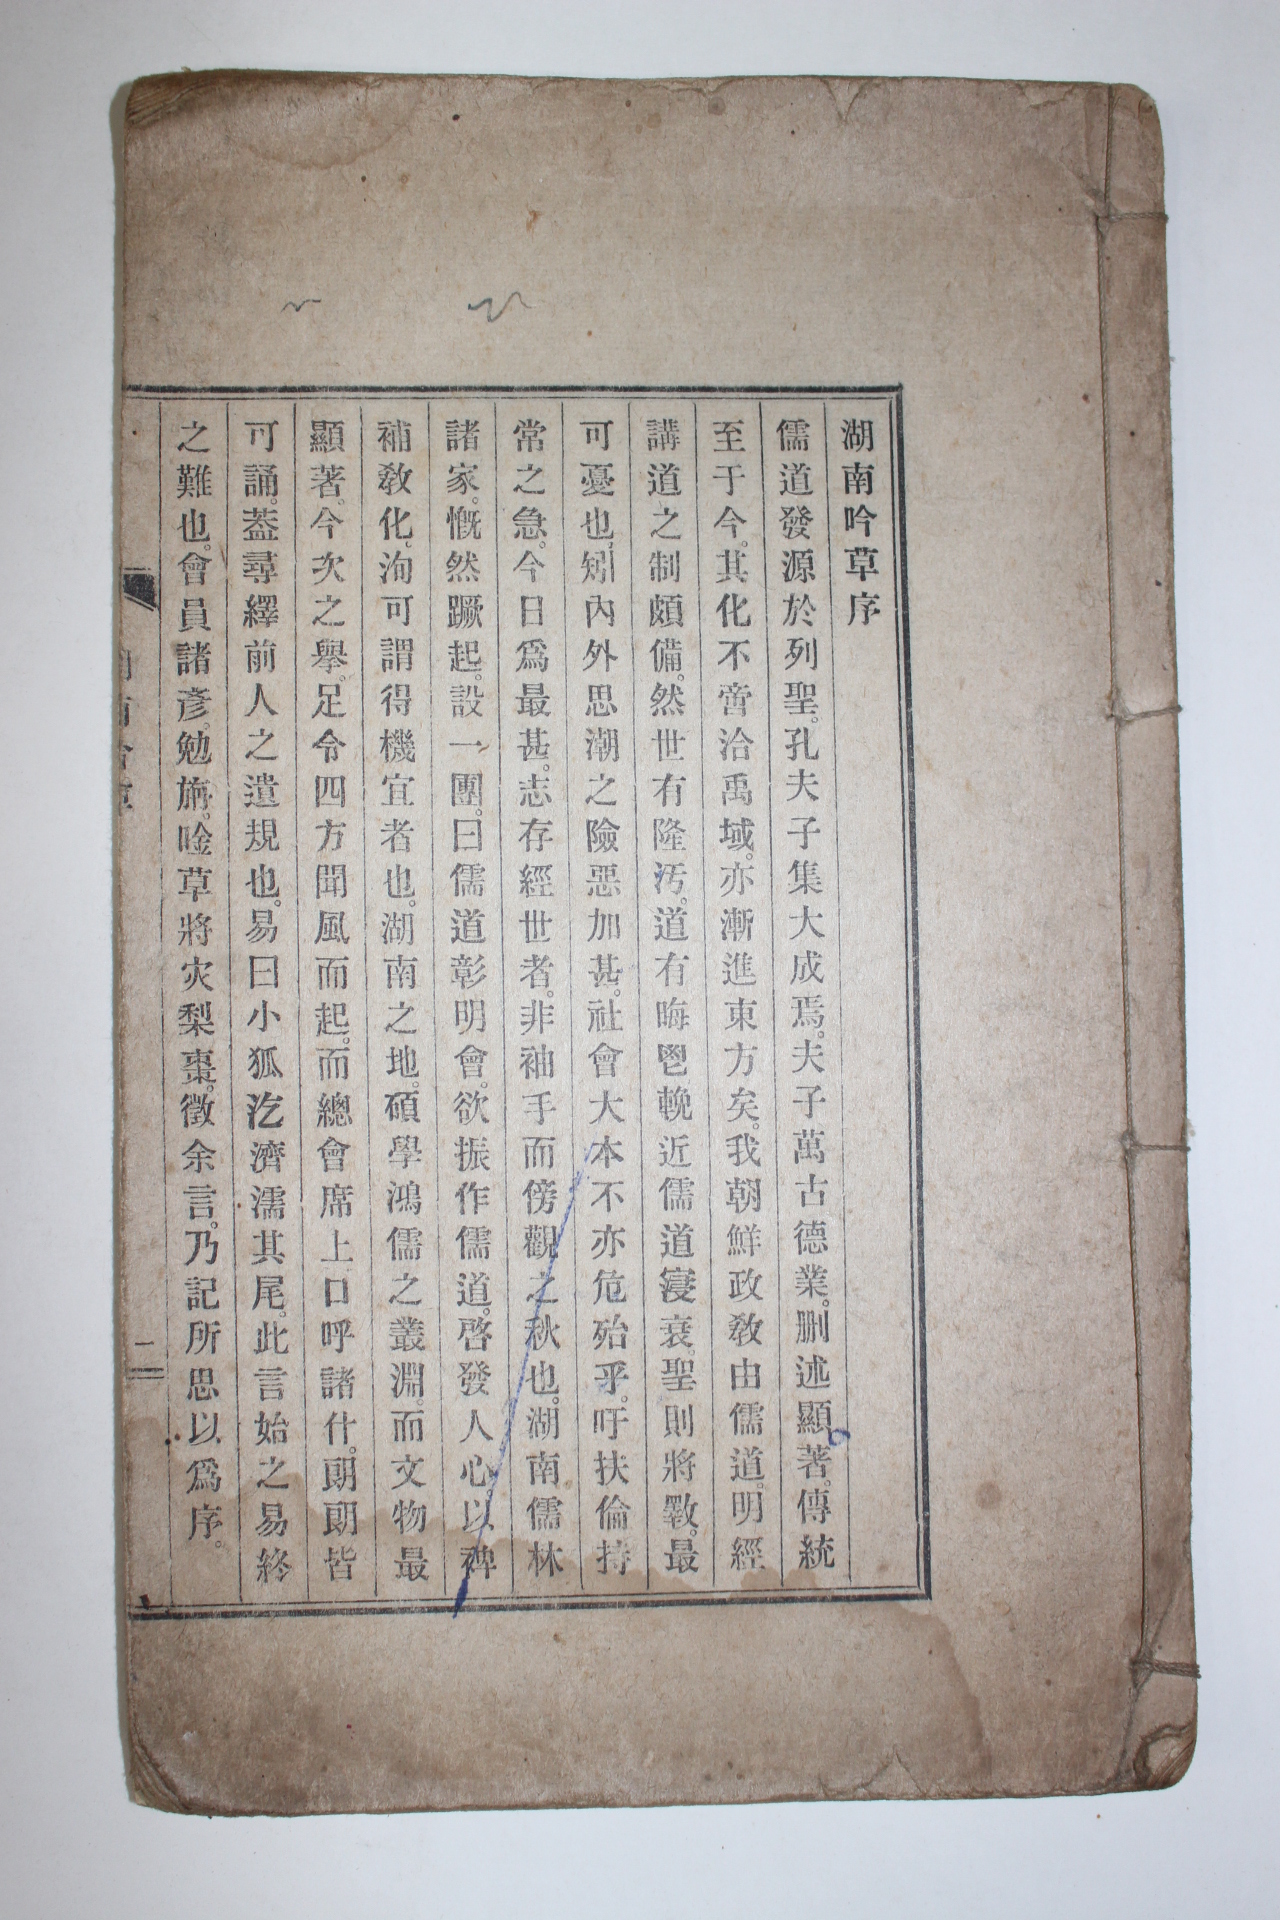 湖南吟草序
儒道發源於列聖。孔夫子集大成焉。夫子萬古德業。刪述顯著。傳統
至于今。其化不啻洽禹域。亦漸進東方矣。我朝鮮政敎由儒道。明經
講道之制頗備。然世有隆汚。道有晦鬯。輓近儒道寖衰。聖則將斁。最
可憂也。矧內外思潮之險惡加甚。社會大本不亦危殆乎。吁扶倫持
常之急。今日爲最甚。志存經世者。非袖手而傍觀之秋也。湖南儒林
諸家。慨然蹶起。設一團。曰儒道彰明會。欲振作儒道。啓發人心。以裨
補敎化。洵可謂得機宜者也。湖南之地。碩學鴻儒之叢淵。而文物最
顯著。今次之擧。足令四方聞風而起。而總會席上口呼諸什。朗朗皆
可誦。葢尋繹前人之遺規也。易曰小狐汔濟濡其尾。此言始之易終
之難也。會員諸彥。勉旃。唫草將灾梨棗。徵余言。乃記所思以爲序。
二